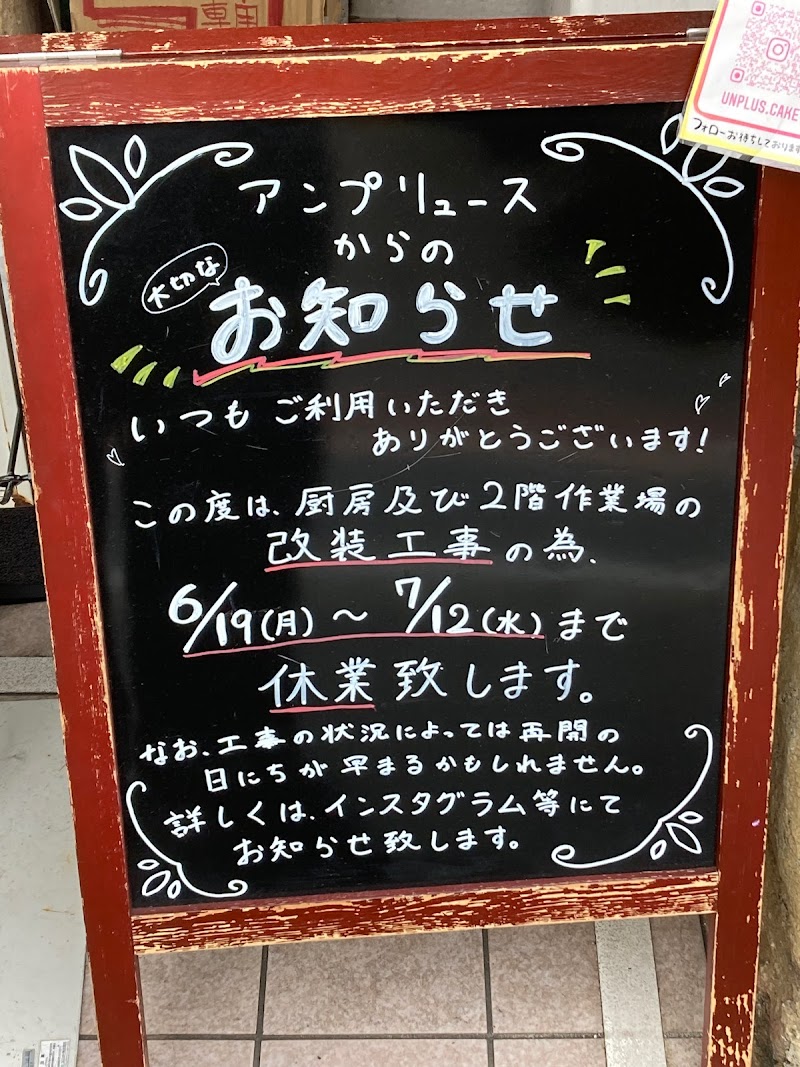 専用
UNPLUS.CAKE
フォローお待ちしております
アンプリュース
からの
大切な
お知らせ
いつもご利用いただき
ありがとうございます!
この度は、厨房及び2階作業場の
改装工事の為、
6/19(月)～7/12(水)まで
休業致します。
なお、工事の状況によっては再開の
日にちが早まるかもしれません。
詳しくは、インスタグラム等にて
お知らせ致します。